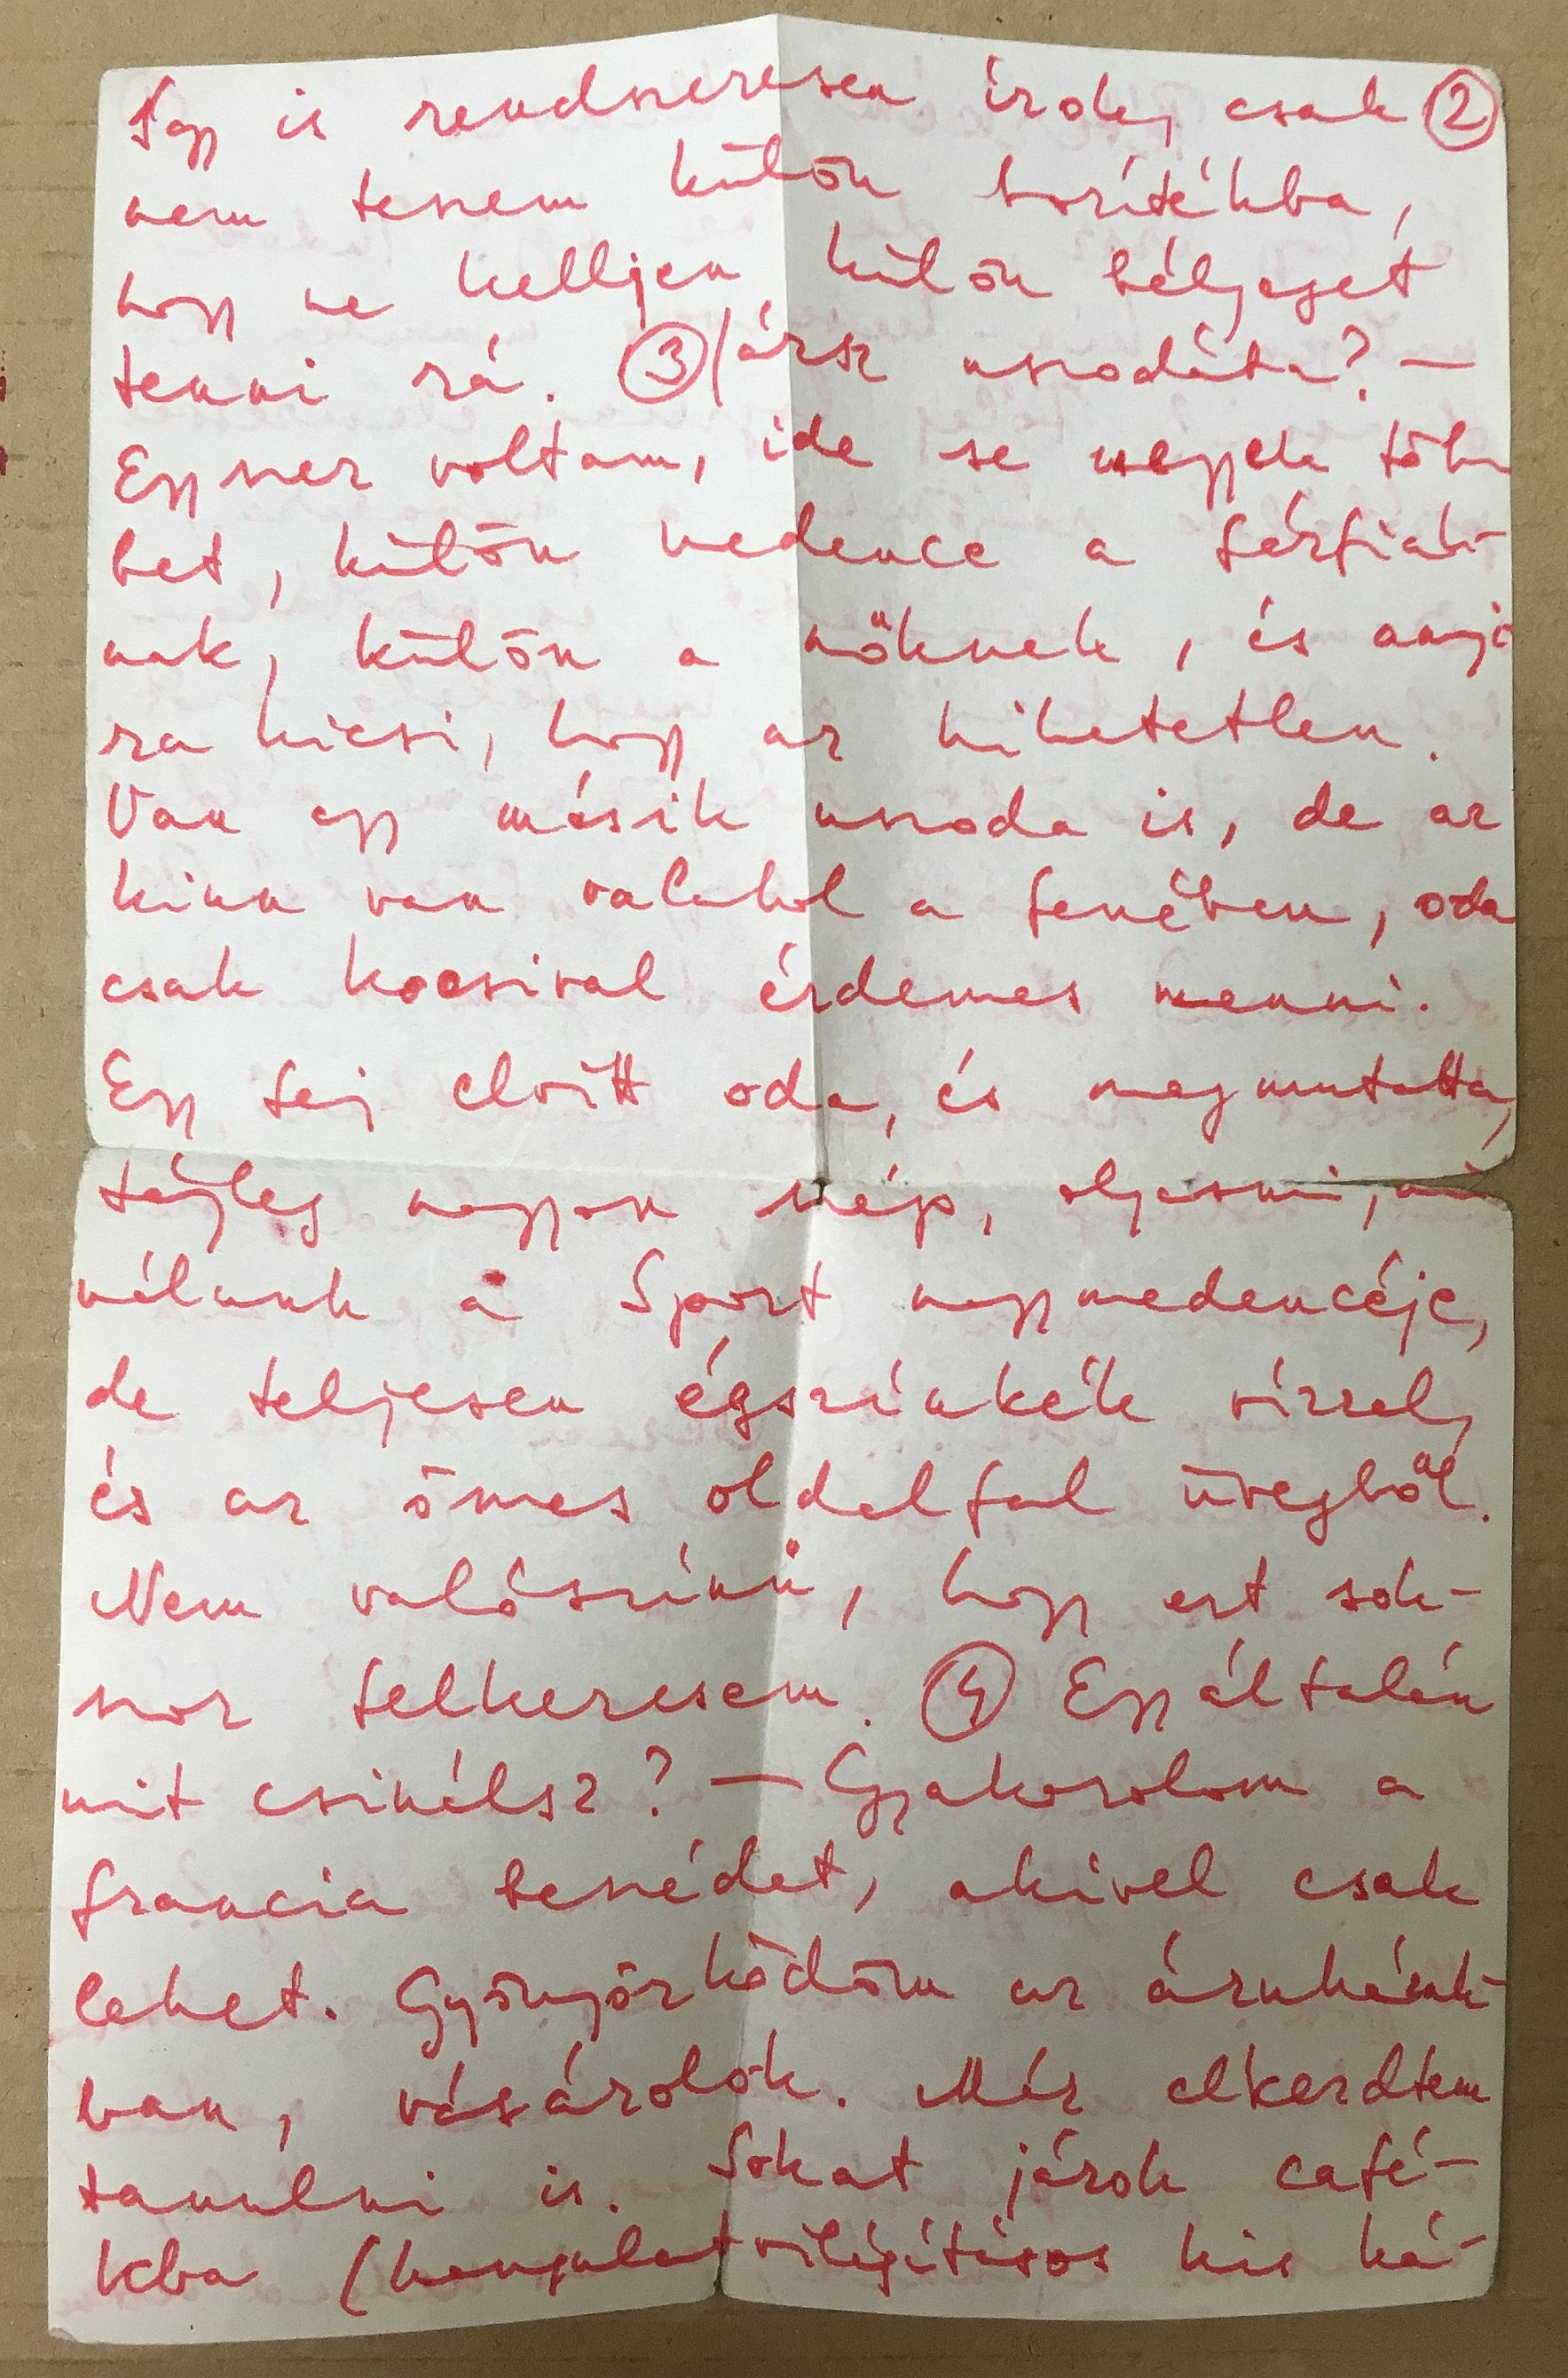 Így is rendszeresen írok, csak ②
nem teszem külön borítékba,
hogy ne kelljen külön bélyeget
tenni rá. ③ Jársz uszodába? —
Egyszer voltam, ide se megyek töb-
bet, külön medence a férfiak-
nak, külön a nőknek, és annyi-
ra kicsi, hogy az hihetetlen.
Van egy másik uszoda is, de az
kinn van valahol a fenében, oda
csak kocsival érdemes menni.
Egy fej elvitt oda, és megmutatta,
tényleg nagyon szép, olyasmi, mi
nálunk a Sport nagymedencéje,
de teljesen égszínkék vízzel,
és az összes oldalfal üvegből.
Nem valószínű, hogy ezt sok-
szor felkeresem. ④ Egyáltalán
mit csinálsz? — Gyakorolom a
francia beszédet, akivel csak
lehet. Gyönyörködöm az áruházak-
ban, vásárolok. Már elkezdtem
tanulni is. Sokat járok café-
kba (hangulatvilágításos kis ká-